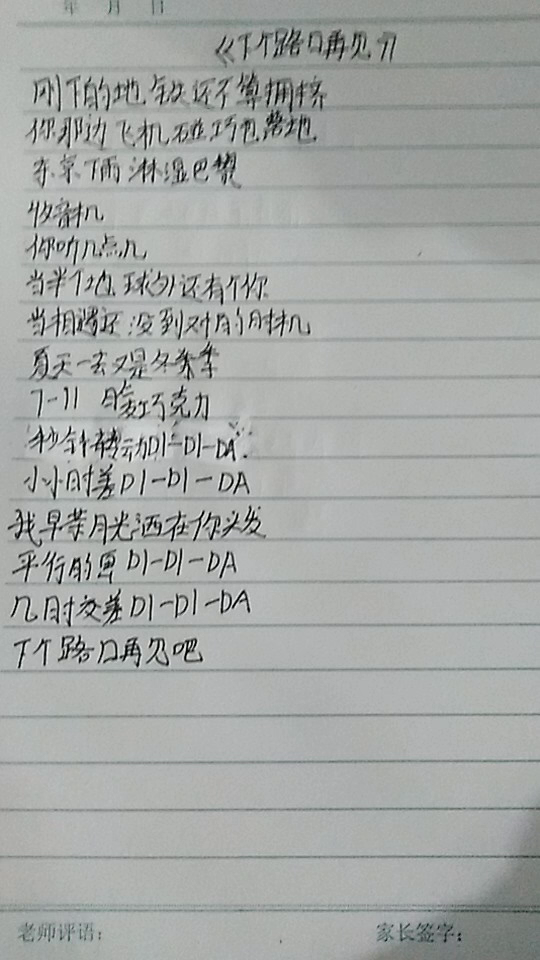 年 月 日
《下个路口再见》
刚下的地铁还不算拥挤
你那边飞机碰巧也落地
东京下雨淋湿巴黎
收音机
你听几点几
当半个地球外还有个你
当相遇还没到对的时机
夏天一去又是冬季
7-11 巧克力
秒针转动DI-DI-DA
小小时差DI-DI-DA
我早茶月光洒在你头发
平行的画DI-DI-DA
几时交差DI-DI-DA
下个路口再见吧
老师评语：
家长签字：